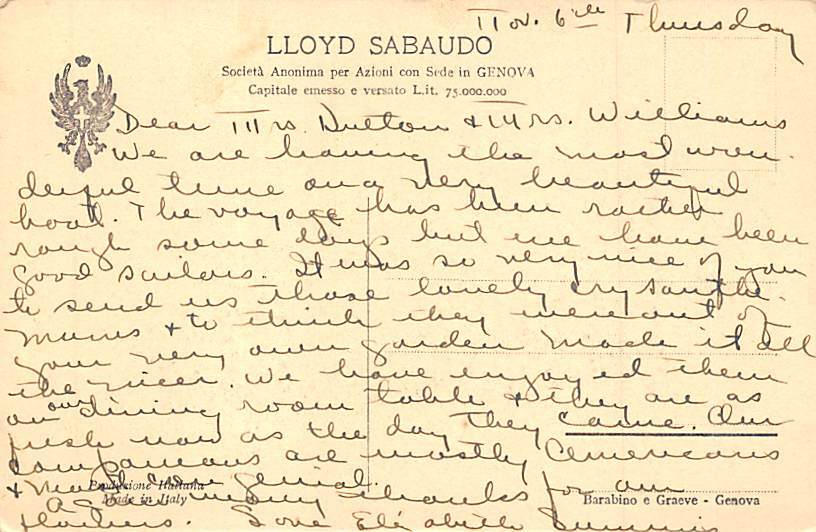 Nov. 6th Thursday
LLOYD SABAUDO
Società Anonima per Azioni con Sede in GENOVA
Capitale emesso e versato L.it. 75.000.000
Dear Mrs. Dutton & Mrs. Williams
We are having the most won-
derful time on a very beautiful
boat. The voyage has been rather
rough some days but we have been
good sailors. It was so very nice of you
to send us those lovely crysanthe-
mums & to think they were out of
your very own garden made it all
the nicer. We have enjoyed them
on our dining room table & they are as
fresh now as the day they came. Our
companions are mostly Americans
& most genial.
many thanks for our
flowers. Love Elizabeth
Produzione Italiana
Made in Italy
Barabino e Graeve - Genova